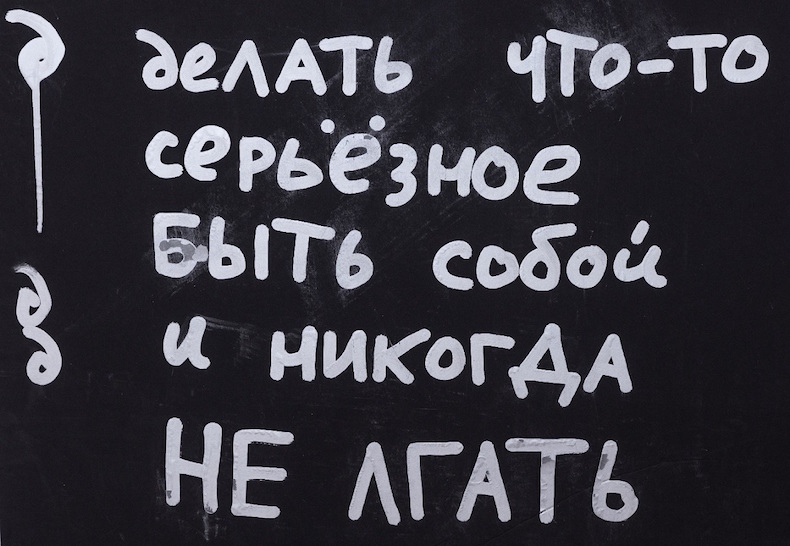 делать что-то
серьёзное
быть собой
и никогда
НЕ ЛГАТЬ